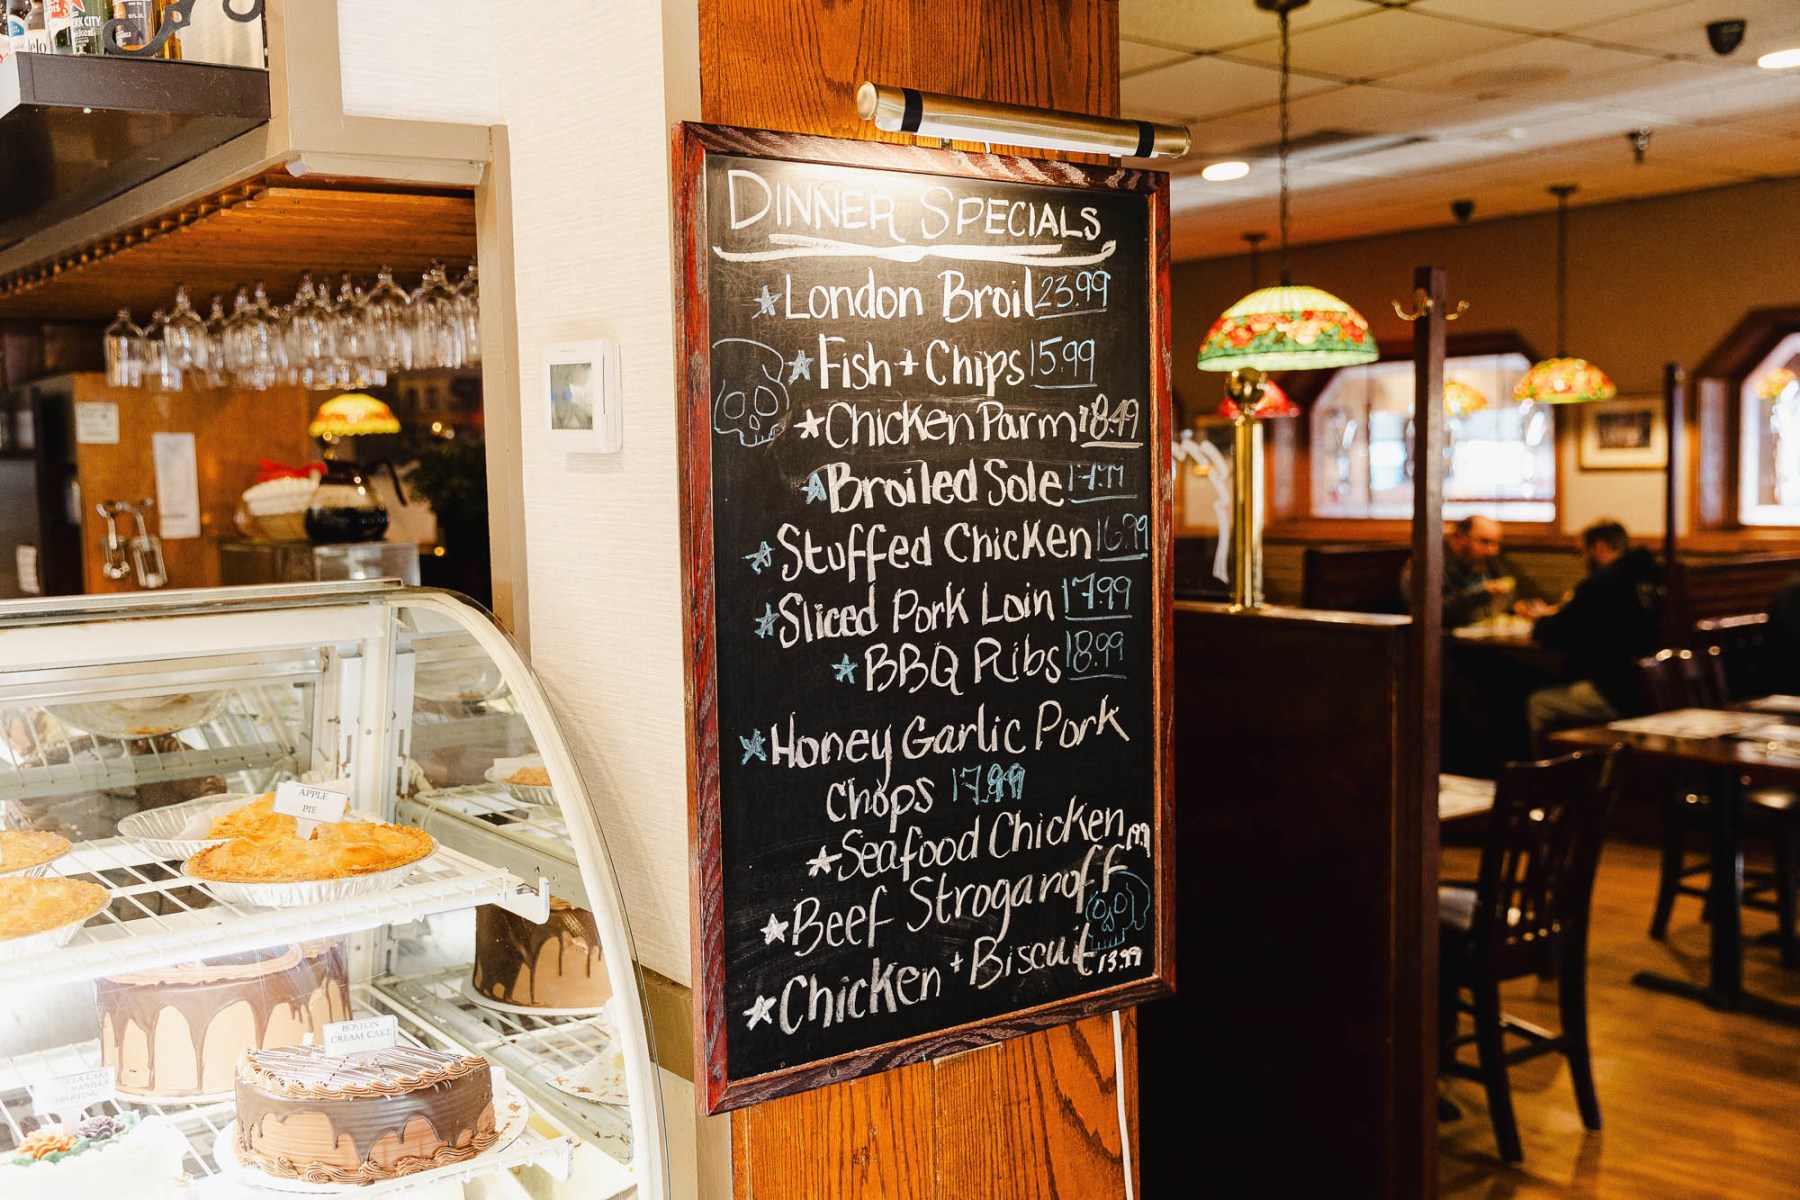 RK CITY
DINNER SPECIALS
London Broil 23.99
Fish + Chips 15.99
Chicken Parm 18.49
Broiled Sole 17.99
Stuffed Chicken 16.99
Sliced Pork Loin 17.99
BBQ Ribs 18.99
Honey Garlic Pork
Chops 17.99
Seafood Chicken
Beef Strogaroff
Chicken + Biscuit 13.99
APPLE
PIE
BOSTON
CREAM CAKE